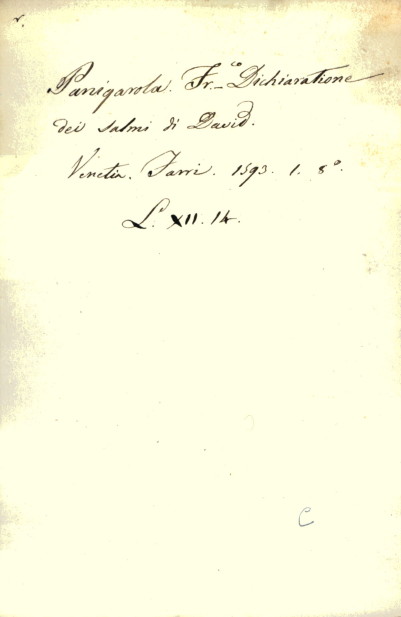 r.
Panigarola. Fr.co Dichiaratione
dei salmi di David.
Venetia. Farri. 1593. 1. 8°.
L. XII. 14.
C